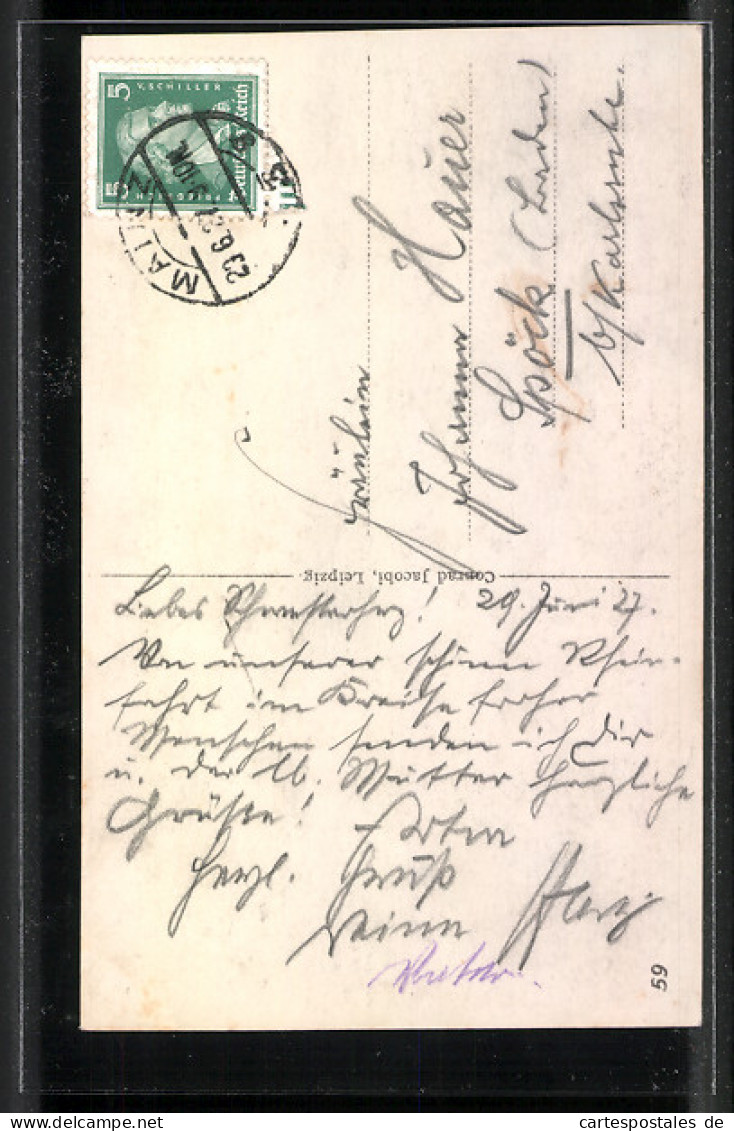 5
V. SCHILLER
Deutsches Reich
5
MAINZ
23.6.27. 9-10N.
Fräulein
Johanna Hauer
Spöck (Baden)
b/Karlsruhe.
Conrad Jacobi, Leipzig.
Liebes Schwesterherz! 29. Juni 27.
Von unserer schönen Rhein-
fahrt im Kreise froher
Menschen senden ich Dir
u. der lb. Mutter herzliche
Grüße!
Herzl. Gruß
59
cartespostales de